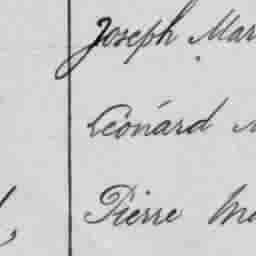 Joseph Mar
Léonard M
Pierre Ma